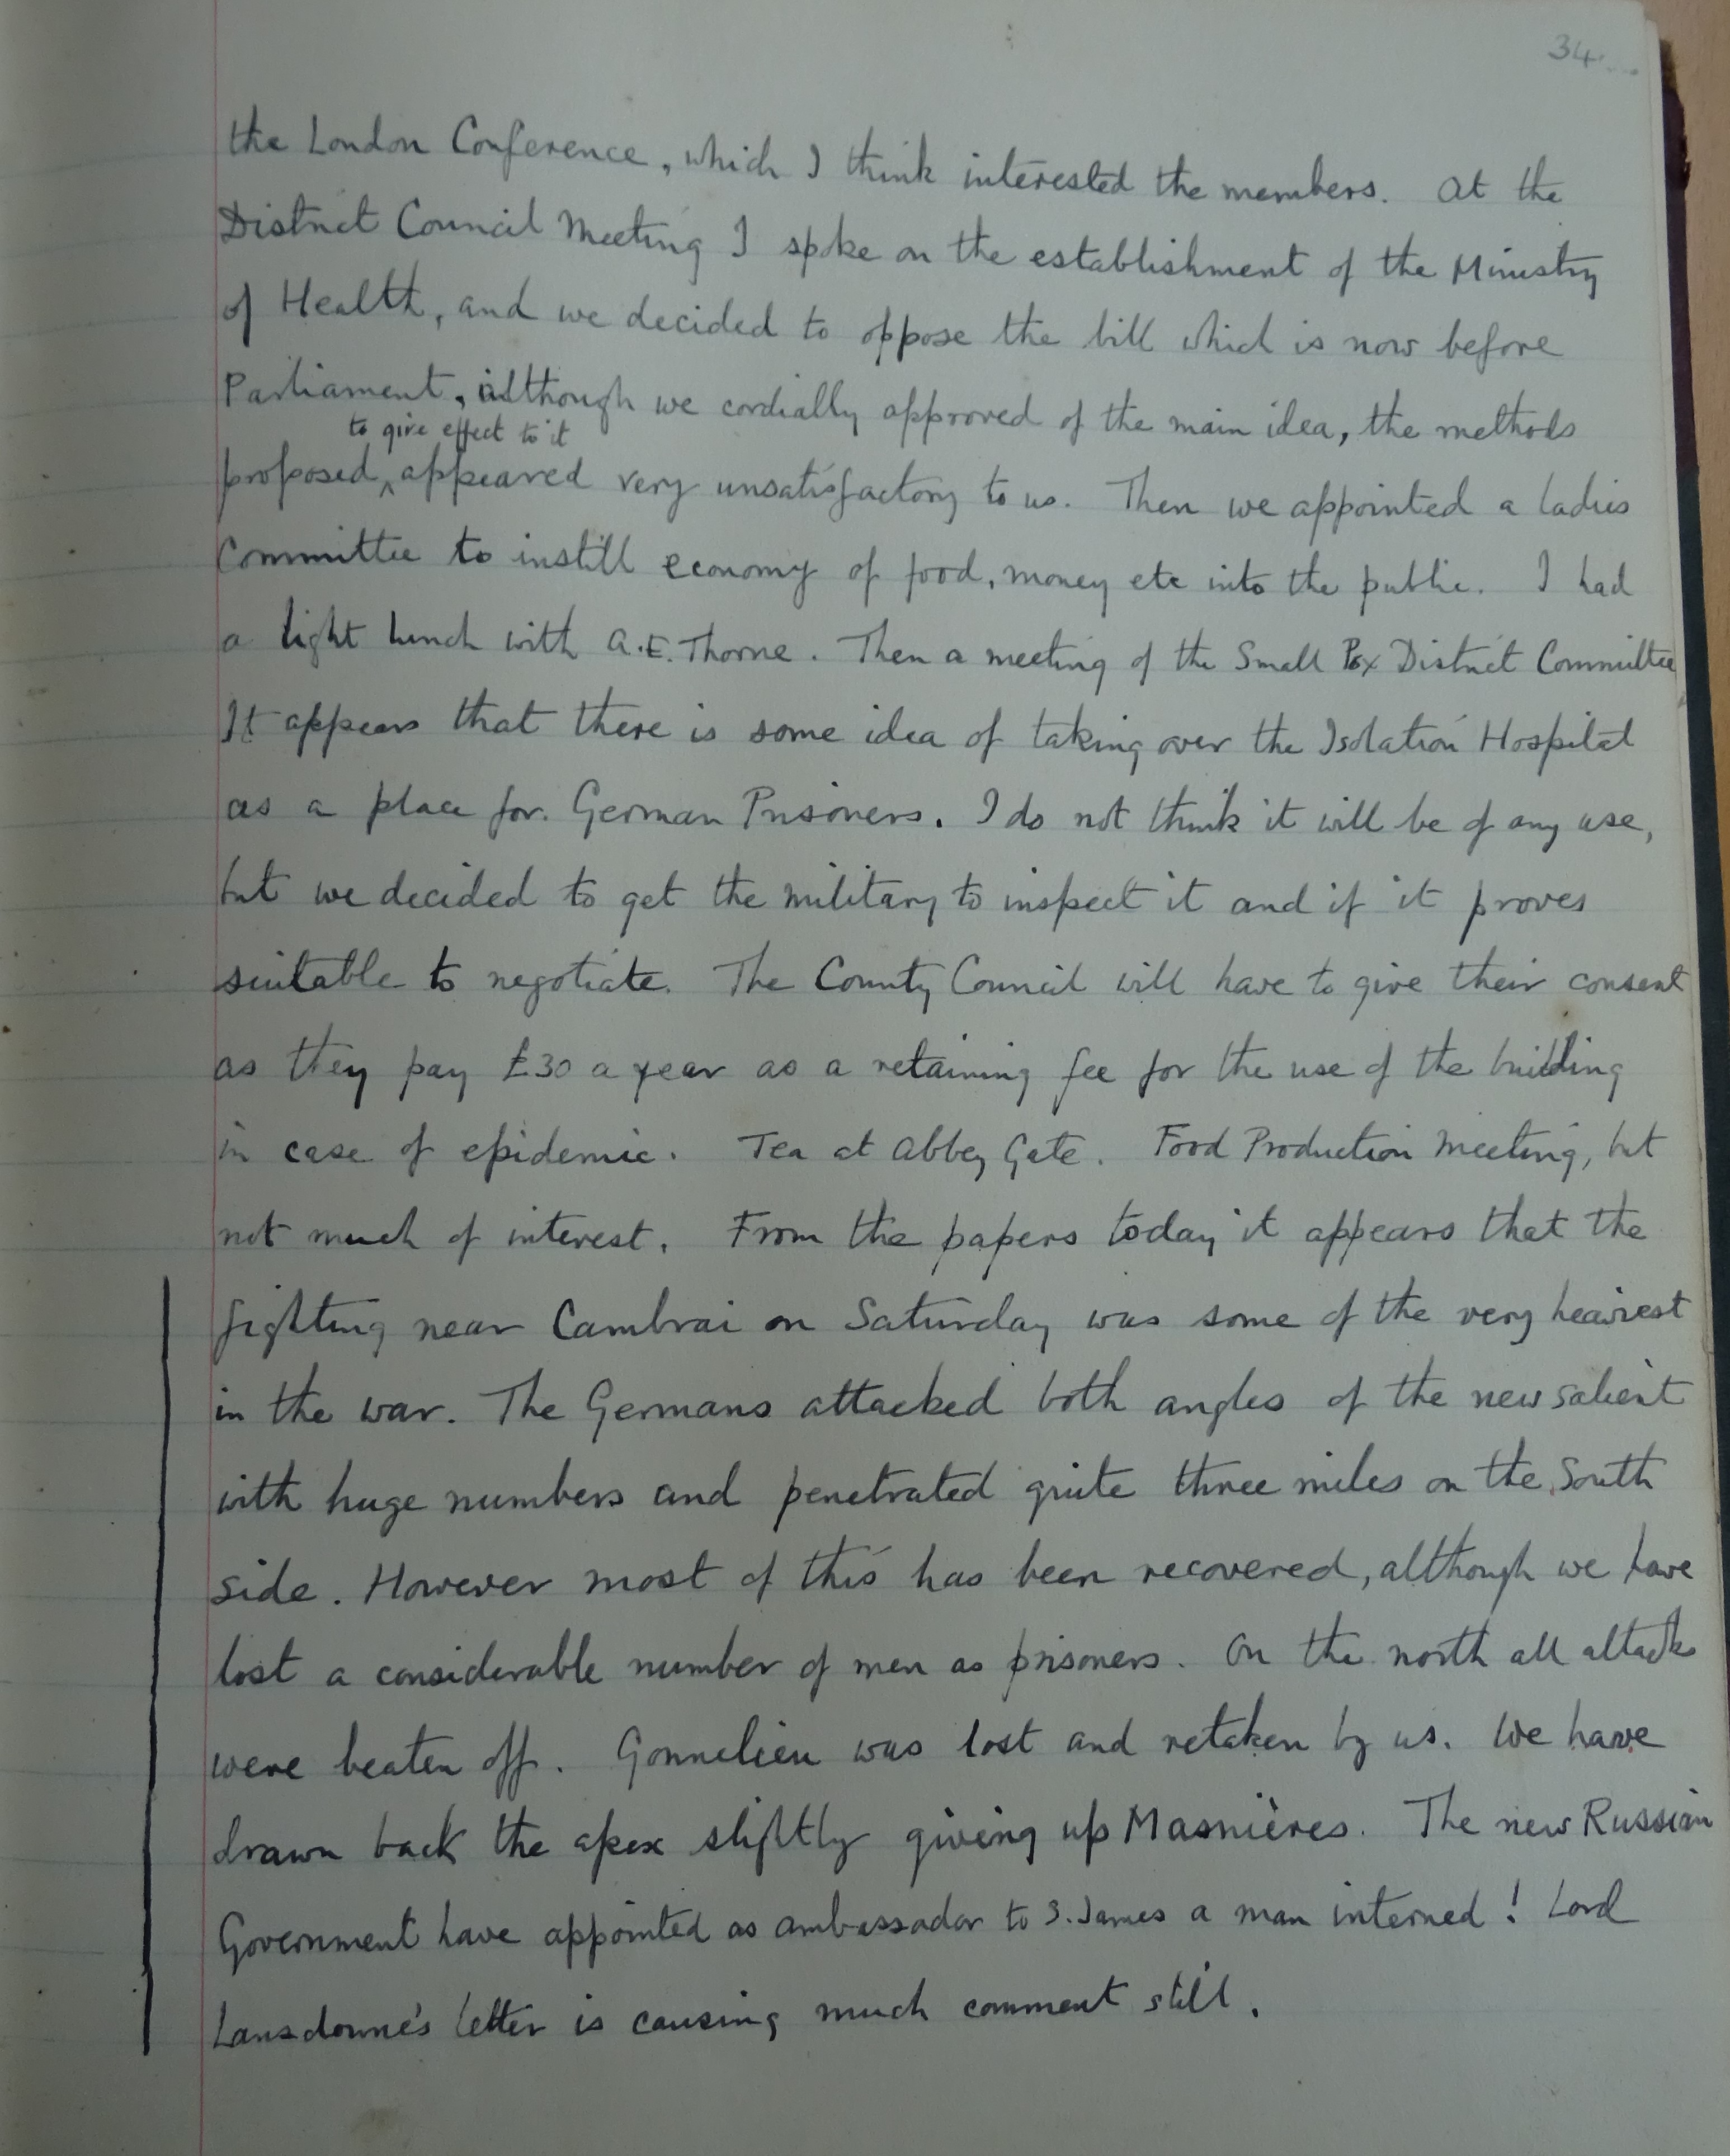 34
the London Conference, which I think interested the members. At the
District Council Meeting I spoke on the establishment of the Ministry
of Health, and we decided to oppose the bill which is now before
Parliament, although we cordially approved of the main idea, the methods
to give effect to it
proposed ^ appeared very unsatisfactory to us. Then we appointed a ladies
Committee to instill economy of food, money etc into the public. I had
a light lunch with A.E. Thorne. Then a meeting of the Small Pox District Committee
It appears that there is some idea of taking over the Isolation Hospital
as a place for German Prisoners. I do not think it will be of any use,
but we decided to get the military to inspect it and if it proves
suitable to negotiate. The County Council will have to give their consent
as they pay £30 a year as a retaining fee for the use of the building
in case of epidemic. Tea at Abbey Gate. Food Production Meeting, but
not much of interest. From the papers today it appears that the
fighting near Cambrai on Saturday was some of the very heaviest
in the war. The Germans attacked both angles of the new salient
with huge numbers and penetrated quite three miles on the South
side. However most of this has been recovered, although we have
lost a considerable number of men as prisoners. On the north all attacks
were beaten off. Gonnelieu was lost and retaken by us. We have
drawn back the apex slightly giving up Masnières. The new Russian
Government have appointed as ambassador to S. James a man interned! Lord
Lansdowne's letter is causing much comment still.